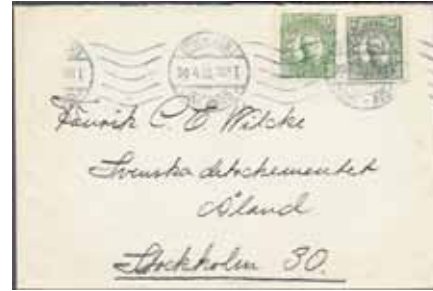 Fänrik C. E. Wilcke
Svenska detachementet
Åland
Stockholm 30.